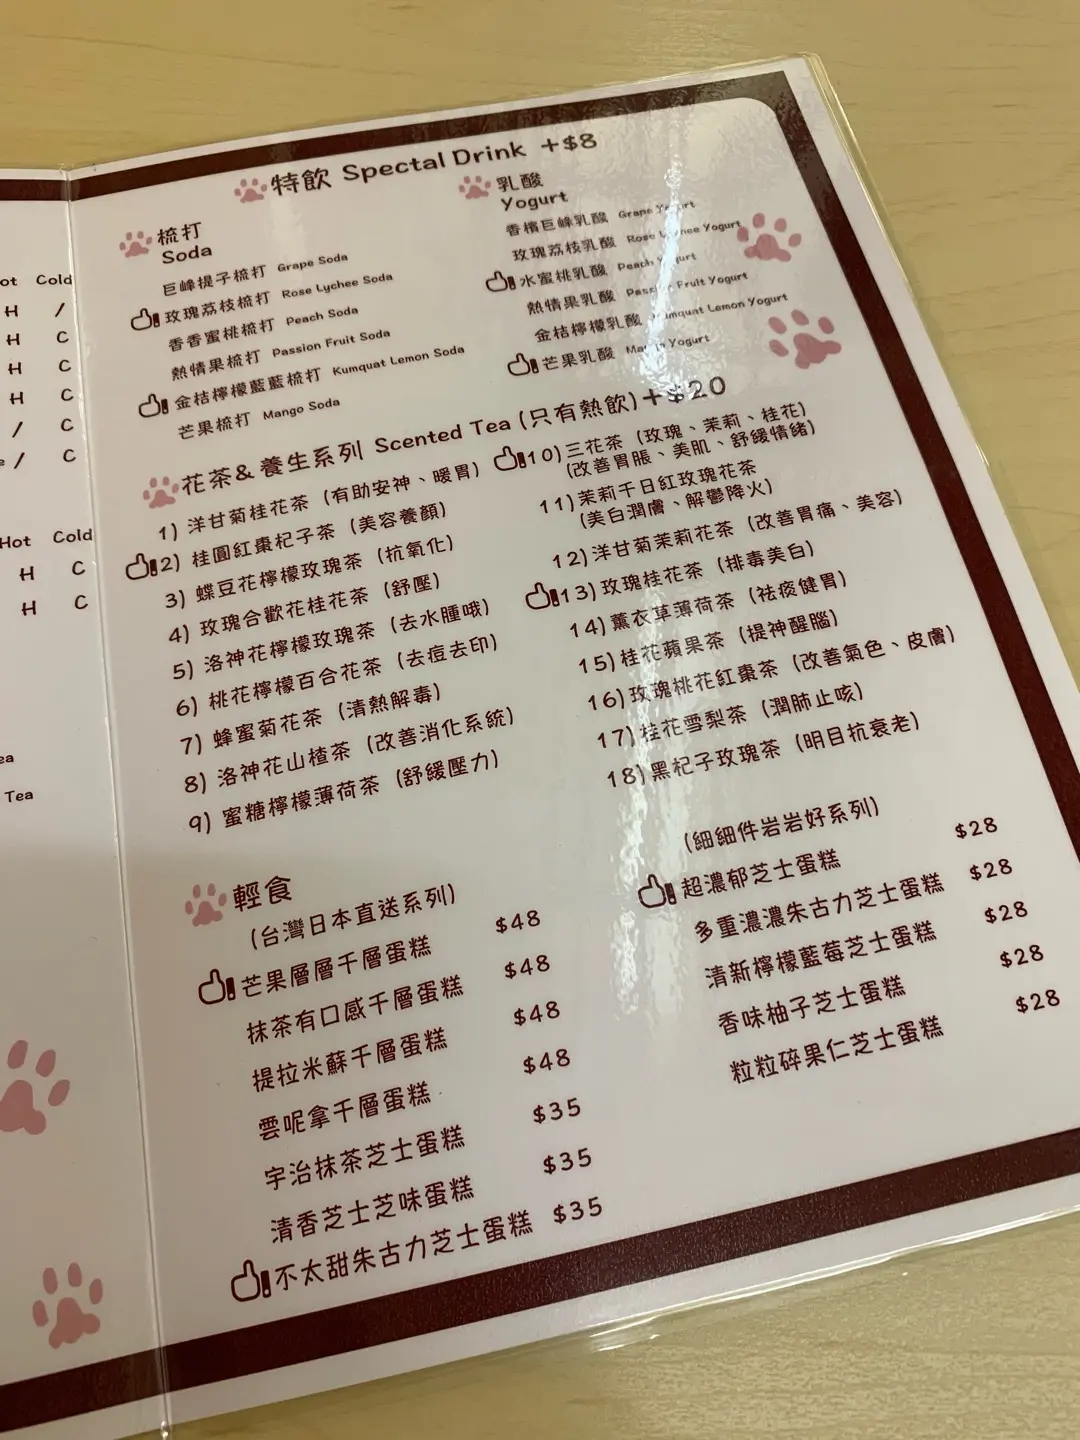 ot Cold
H /
H C
H C
H C
/ C
/ C
Hot Cold
H C
H C
ea
Tea
特飲 Spectal Drink +$8
梳打
Soda
巨峰提子梳打 Grape Soda
玫瑰荔枝梳打 Rose Lychee Soda
香香蜜桃梳打 Peach Soda
熱情果梳打 Passion Fruit Soda
金桔檸檬藍藍梳打 Kumquat Lemon Soda
芒果梳打 Mango Soda
乳酸
Yogurt
香檳巨峰乳酸 Grape Yogurt
玫瑰荔枝乳酸 Rose Lychee Yogurt
水蜜桃乳酸 Peach Yogurt
熱情果乳酸 Passion Fruit Yogurt
金桔檸檬乳酸 Kumquat Lemon Yogurt
芒果乳酸 Mango Yogurt
花茶&養生系列 Scented Tea (只有熱飲)+$20
1) 洋甘菊桂花茶 (有助安神、暖胃)
2) 桂圓紅棗杞子茶 (美容養顏)
3) 蝶豆花檸檬玫瑰茶 (抗氧化)
4) 玫瑰合歡花桂花茶 (舒壓)
5) 洛神花檸檬玫瑰茶 (去水腫哦)
6) 桃花檸檬百合花茶 (去痘去印)
7) 蜂蜜菊花茶 (清熱解毒)
8) 洛神花山楂茶 (改善消化系統)
9) 蜜糖檸檬薄荷茶 (舒緩壓力)
10) 三花茶 (玫瑰、茉莉、桂花)
(改善胃脹、美肌、舒緩情緒)
11) 茉莉千日紅玫瑰花茶
(美白潤膚、解鬱降火)
12) 洋甘菊茉莉花茶 (改善胃痛、美容)
13) 玫瑰桂花茶 (排毒美白)
14) 薰衣草薄荷茶 (祛痰健胃)
15) 桂花蘋果茶 (提神醒腦)
16) 玫瑰桃花紅棗茶 (改善氣色、皮膚)
17) 桂花雪梨茶 (潤肺止咳)
18) 黑杞子玫瑰茶 (明目抗衰老)
輕食
(台灣日本直送系列)
芒果層層千層蛋糕 $48
抹茶有口感千層蛋糕 $48
提拉米蘇千層蛋糕 $48
雲呢拿千層蛋糕 $48
宇治抹茶芝士蛋糕 $35
清香芝士芝味蛋糕 $35
不太甜朱古力芝士蛋糕 $35
(細細件岩岩好系列)
超濃郁芝士蛋糕 $28
多重濃濃朱古力芝士蛋糕 $28
清新檸檬藍莓芝士蛋糕 $28
香味柚子芝士蛋糕 $28
粒粒碎果仁芝士蛋糕 $28